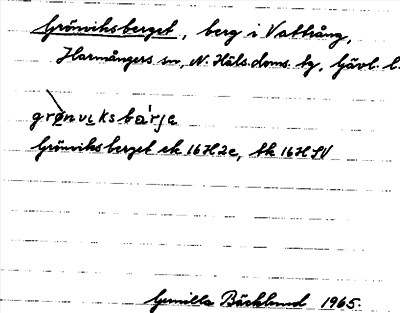 Grönviksberget, berg i Vattrång,
Harmångers sn, N. Häls. doms. tg, Gävl. l.
grønviksbärje
Grönviksberget ek 16H2e, tk 16HSV
Gunilla Bäcklund 1965.